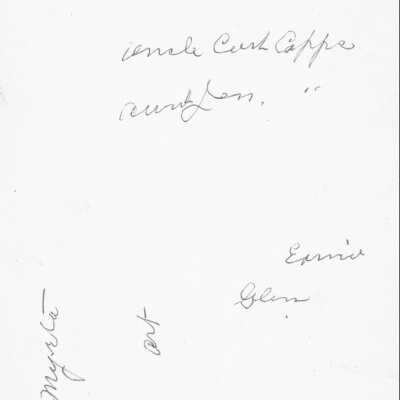 uncle Curt Capps
aunt Jen. "
Ernie
Glen
art
Myrta